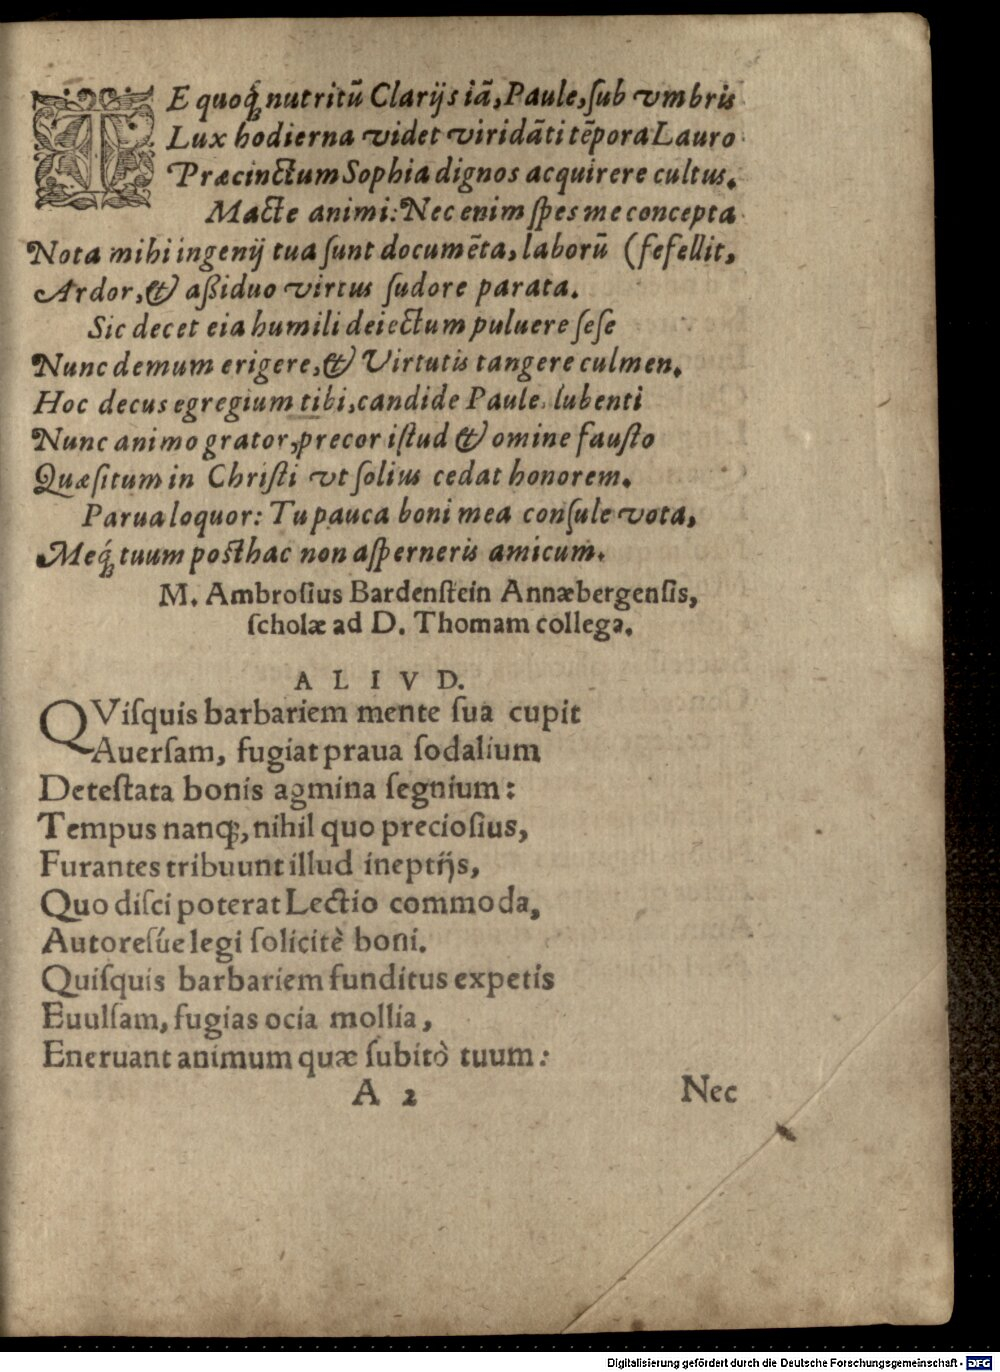 TE quoq́; nutritũ Clarijs iã, Paule, ſub vmbris
Lux hodierna videt viridãti tẽpora Lauro
Præcinctum Sophia dignos acquirere cultus.
Macte animi: Nec enim ſpes me concepta
Nota mihi ingenij tua ſunt documẽta, laborũ (fefellit,
Ardor, & aßiduo virtus ſudore parata.
Sic decet eia humili deiectum puluere ſeſe
Nunc demum erigere, & Virtutis tangere culmen.
Hoc decus egregium tibi, candide Paule, lubenti
Nunc animo grator, precor iſtud & omine fauſto
Quæſitum in Chriſti vt ſolius cedat honorem.
Parua loquor: Tu pauca boni mea conſule vota,
Meq́; tuum poſthac non aſperneris amicum.
M. Ambroſius Bardenſtein Annæbergenſis,
ſcholæ ad D. Thomam collega.
ALIVD.
QViſquis barbariem mente ſua cupit
Auerſam, fugiat praua ſodalium
Deteſtata bonis agmina ſegnium:
Tempus nanq;, nihil quo precioſius,
Furantes tribuunt illud ineptijs,
Quo diſci poterat Lectio commoda,
Autoresúe legi ſolicitè boni.
Quiſquis barbariem funditus expetis
Euulſam, fugias ocia mollia,
Eneruant animum quæ ſubitò tuum:
A 2 Nec
Digitalisierung gefördert durch die Deutsche Forschungsgemeinschaft - DFG